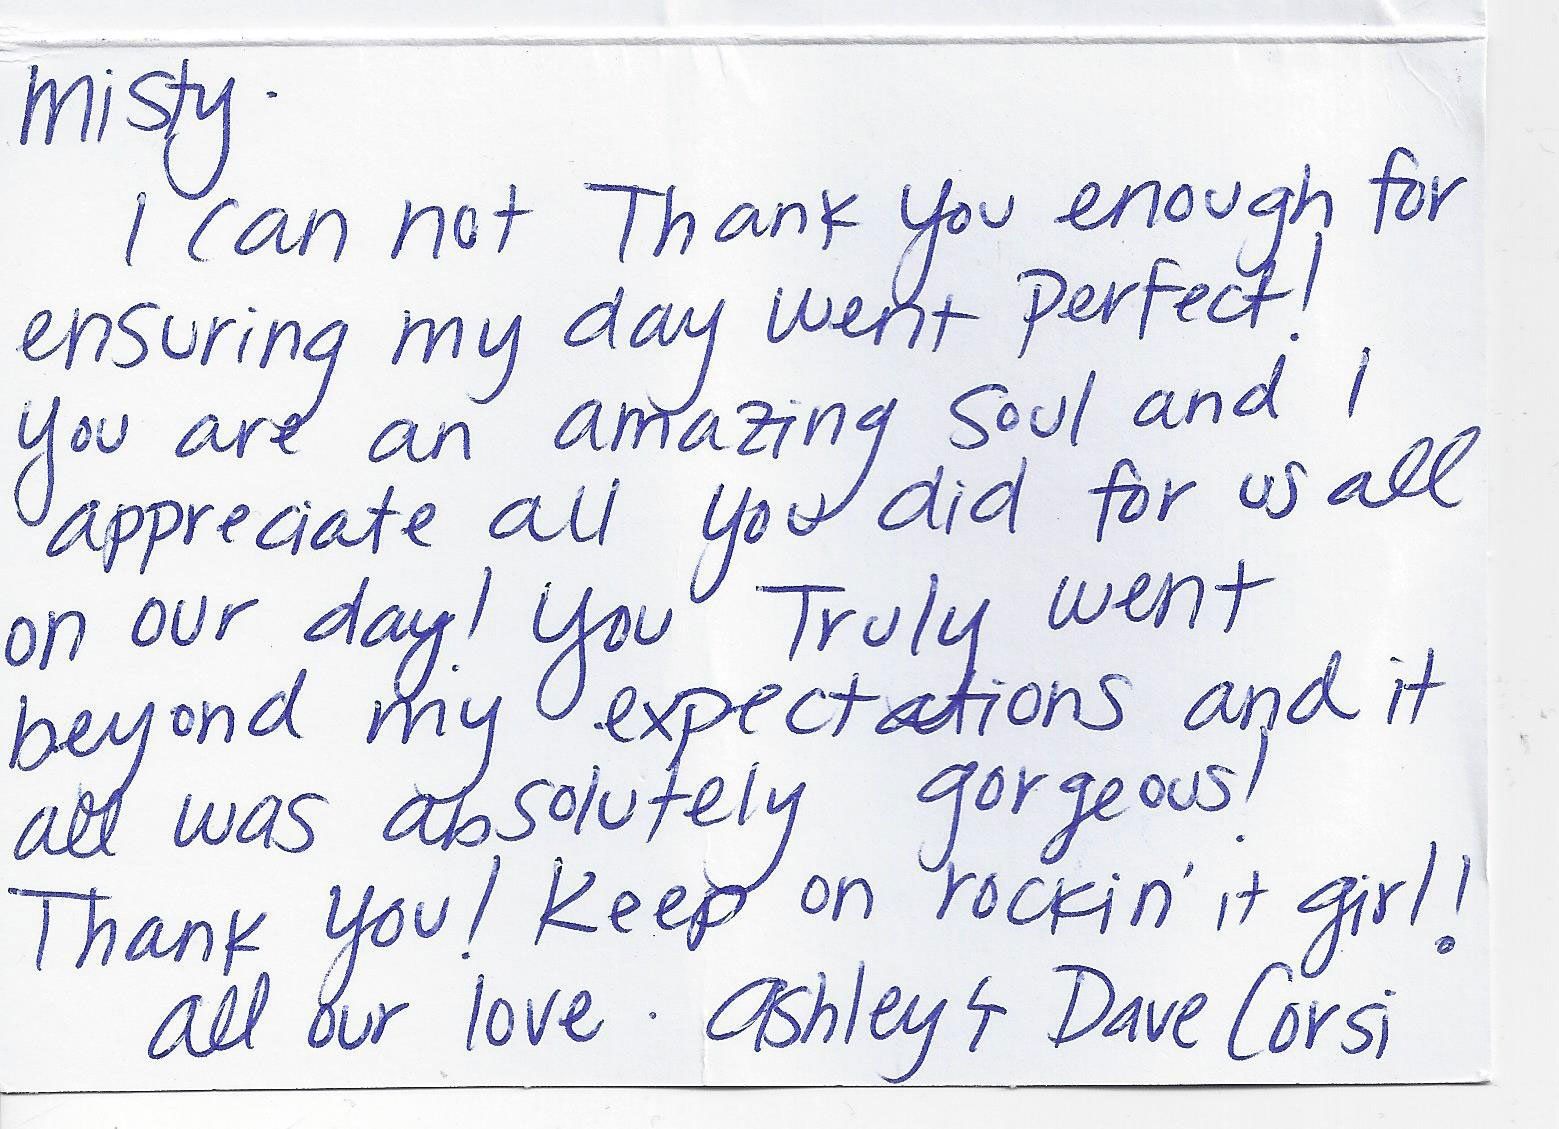 Misty.
I can not Thank you enough for
ensuring my day went perfect!
You are an amazing soul and I
appreciate all you did for us all
on our day! You Truly went
beyond my expectations and it
all was absolutely gorgeous!
Thank you! Keep on rockin' it girl!
all our love. Ashley & Dave Corsi